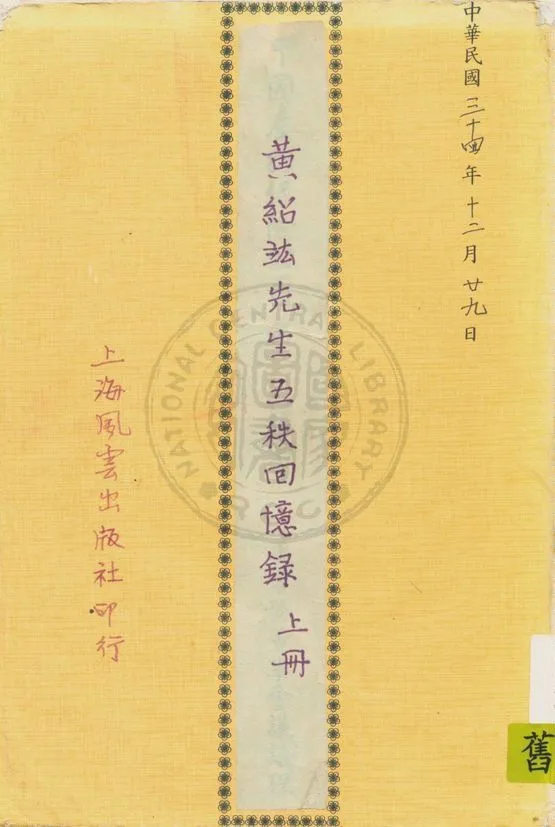 中華民國三十四年十二月廿九日
黃紹竑先生五秩回憶録 上冊
上海風雲出版社印行
舊
NATIONAL CENTRAL LIBRARY
R.O.C.